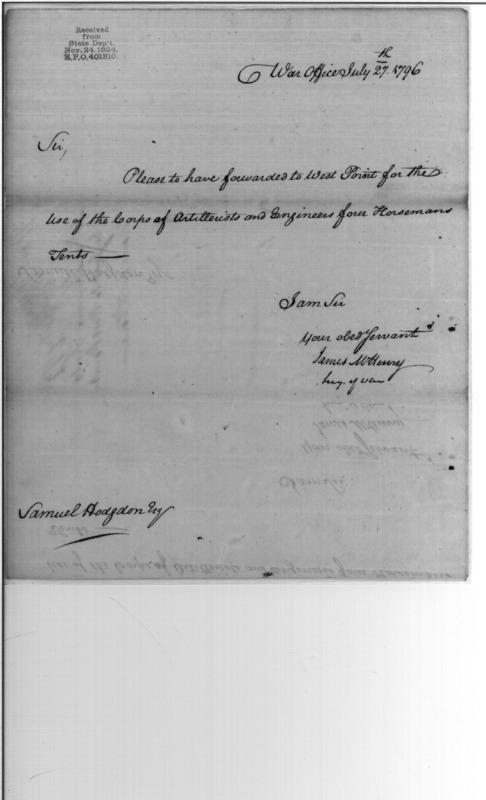 Received
from
State Dep't.
Nov. 24. 1894.
R.P.O. 401310.
War Office July 27th 1796
Sir,
Please to have forwarded to West Point for the
Use of the Corps of Artillerists and Engineers four Horsemans
Tents —
I am Sir
Your obed Servant
James McHenry
Secy. of war
Samuel Hodgdon Esq